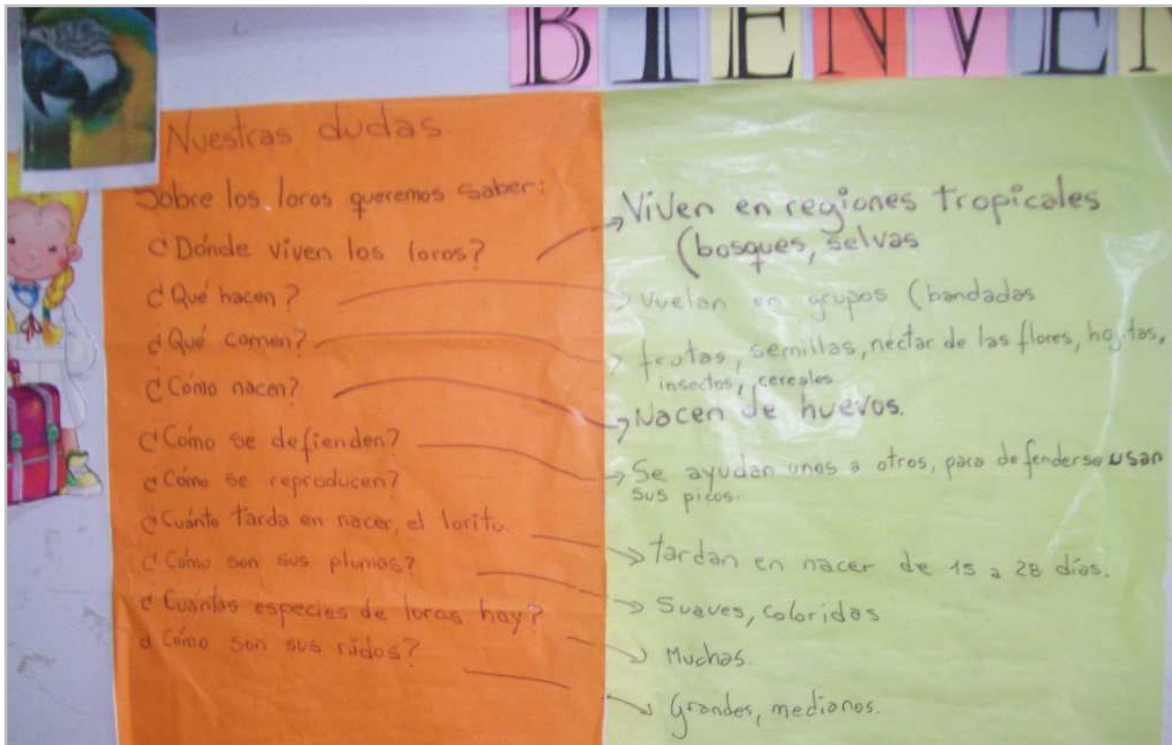 BIENVEN
Nuestras dudas
Sobre los loros queremos saber:
¿Dónde viven los loros?
¿Qué hacen?
¿Qué comen?
¿Cómo nacen?
¿Cómo se defienden?
¿Cómo se reproducen?
¿Cuánto tarda en nacer, el lorito.
¿Cómo son sus plumas?
¿Cuántas especies de loros hay?
¿Cómo son sus nidos?
Viven en regiones tropicales
(bosques, selvas
Vuelan en grupos (bandadas
frutas, semillas, néctar de las flores, hojitas,
insectos, cereales
Nacen de huevos.
Se ayudan unos a otros, para defenderse usan
sus picos.
tardan en nacer de 15 a 28 días.
Suaves, coloridas
Muchas.
Grandes, medianos.